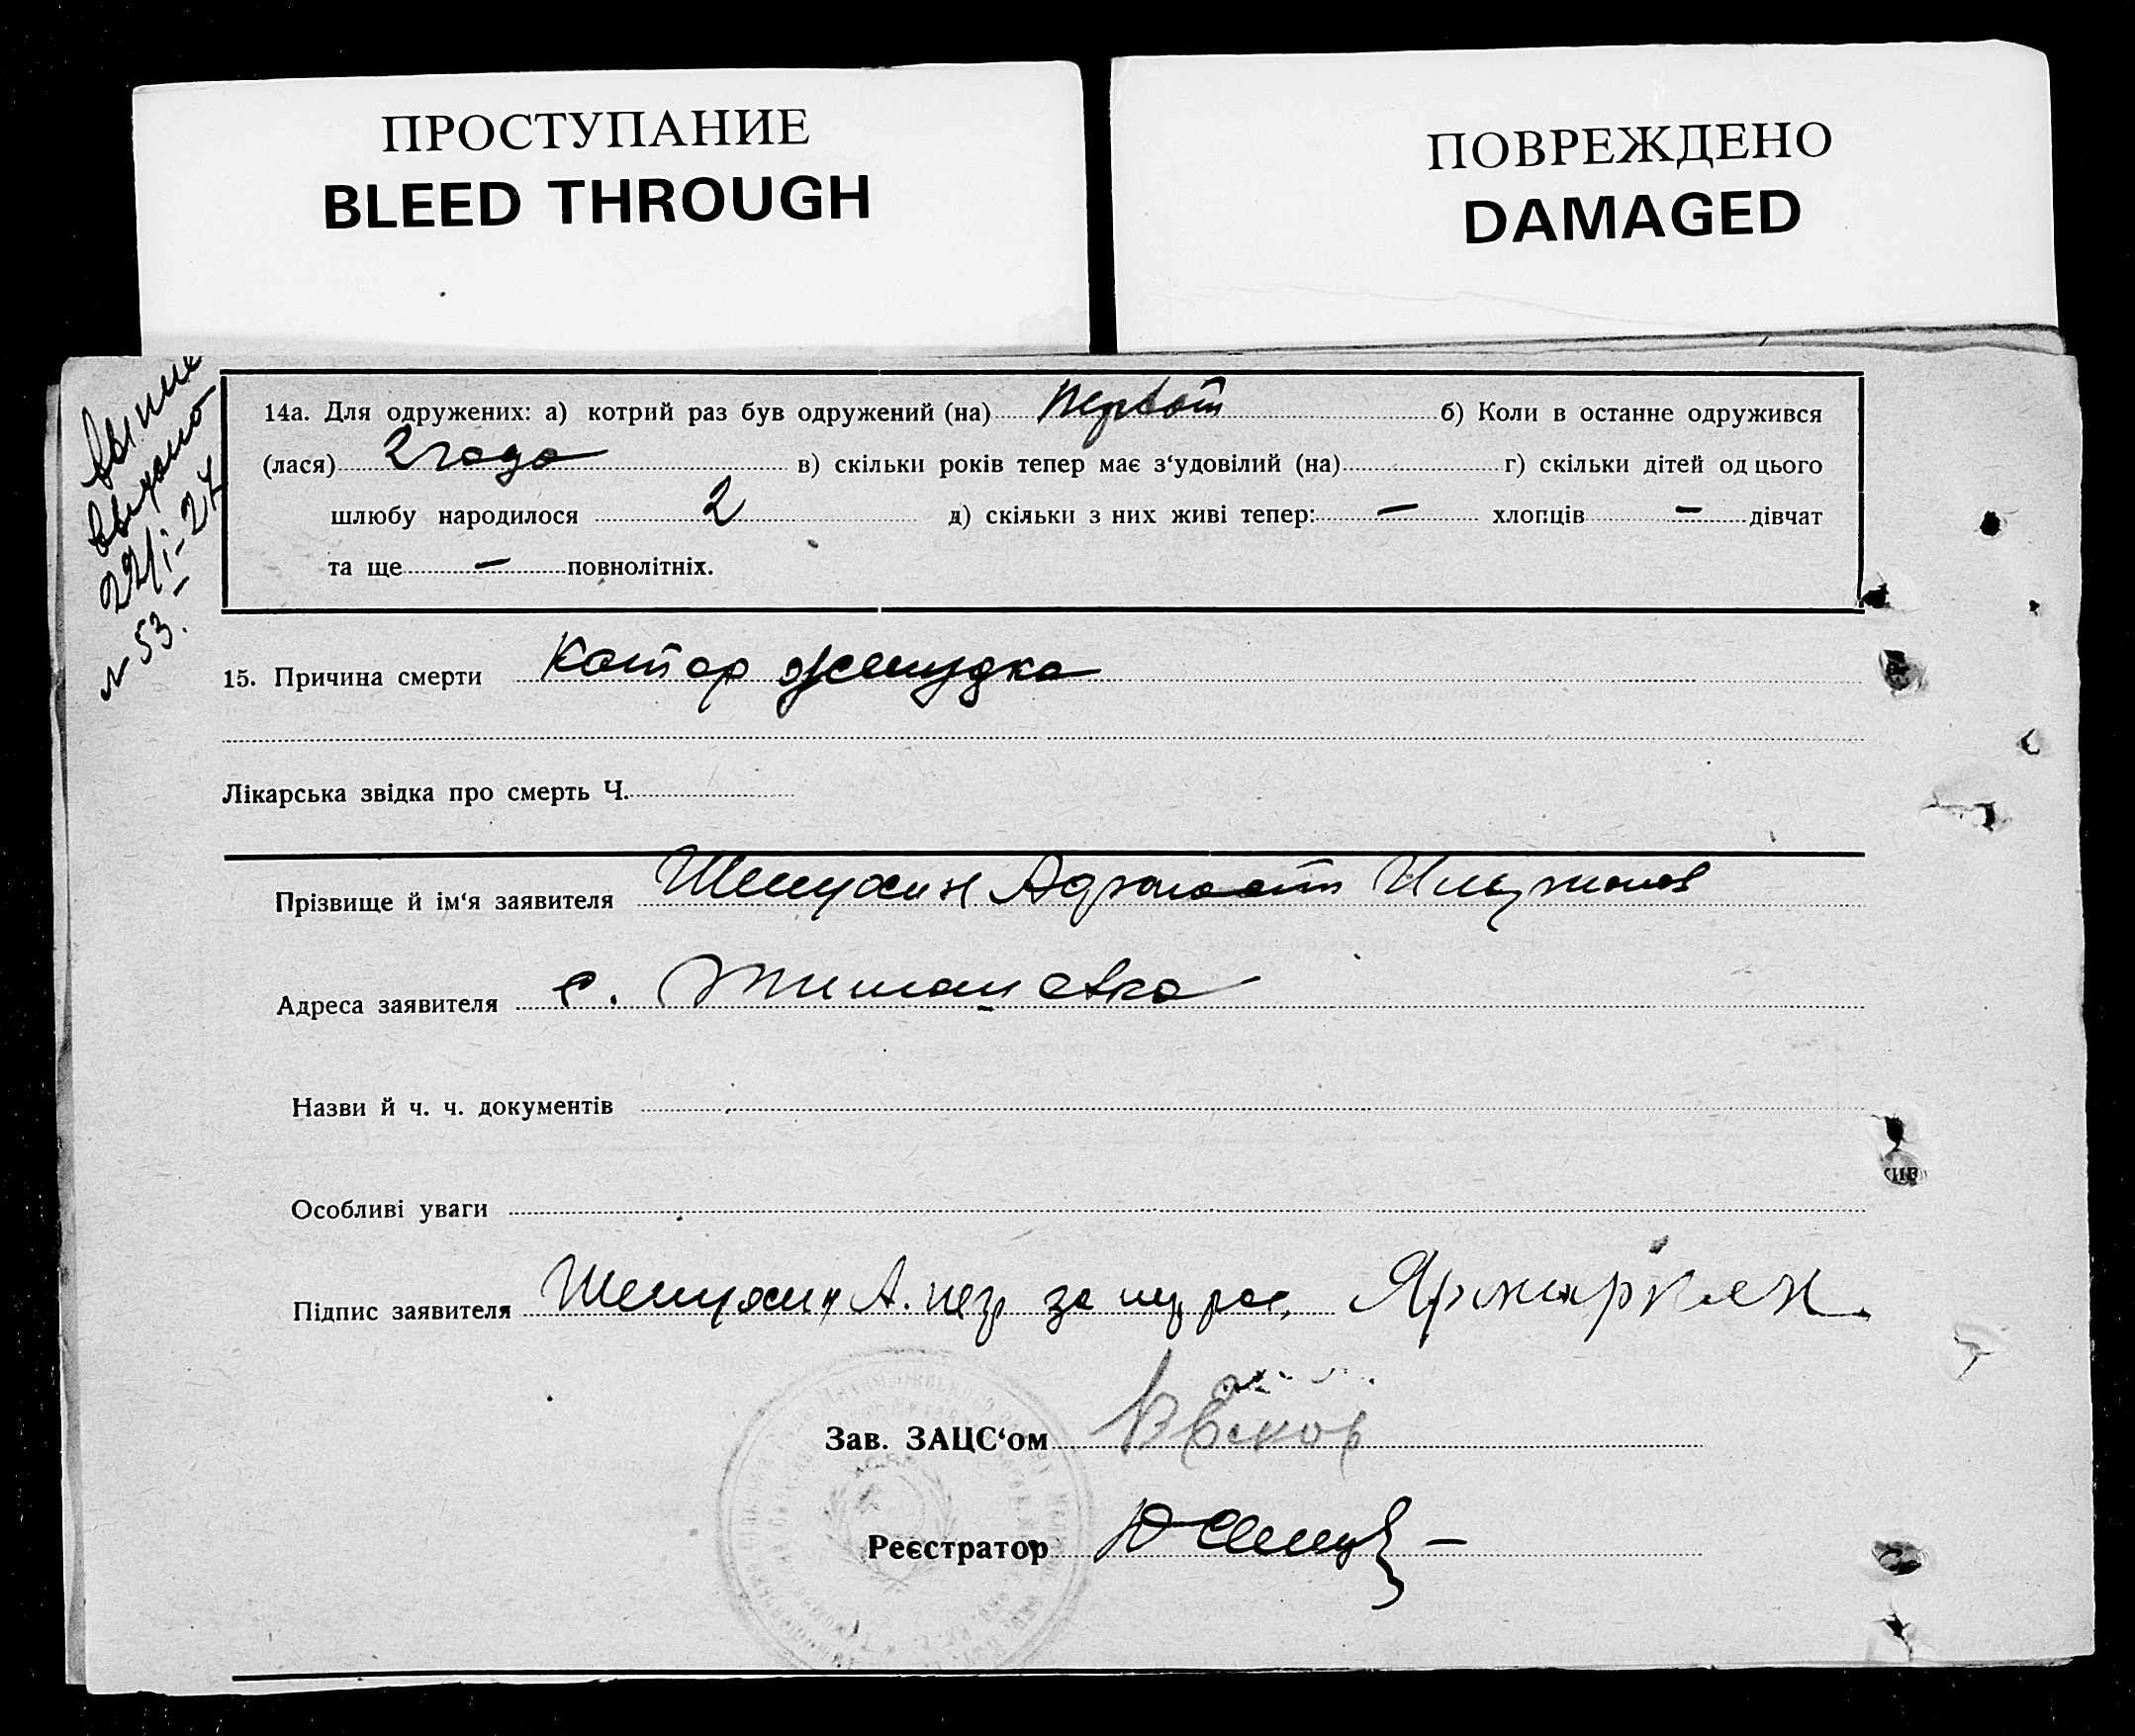 ПРОСТУПАНИЕ
BLEED THROUGH
ПОВРЕЖДЕНО
DAMAGED
выдано
22/I-27
№ 53.
14а. Для одружених: а) котрий раз був одружений (на) первый б) Коли в останнє одружився
(лася) 2 года в) скільки років тепер має з‘удовілий (на) г) скільки дітей од цього
шлюбу народилося 2 д) скільки з них живі тепер: — хлопців — дівчат
та ще — повнолітніх.
15. Причина смерти Катар желудка
Лікарська звідка про смерть Ч.
Прізвище й ім‘я заявителя
Адреса заявителя с. Тимашевка
Назви й ч. ч. документів
Особливі уваги
Підпис заявителя А. за
Зав. ЗАЦС‘ом
Реєстратор